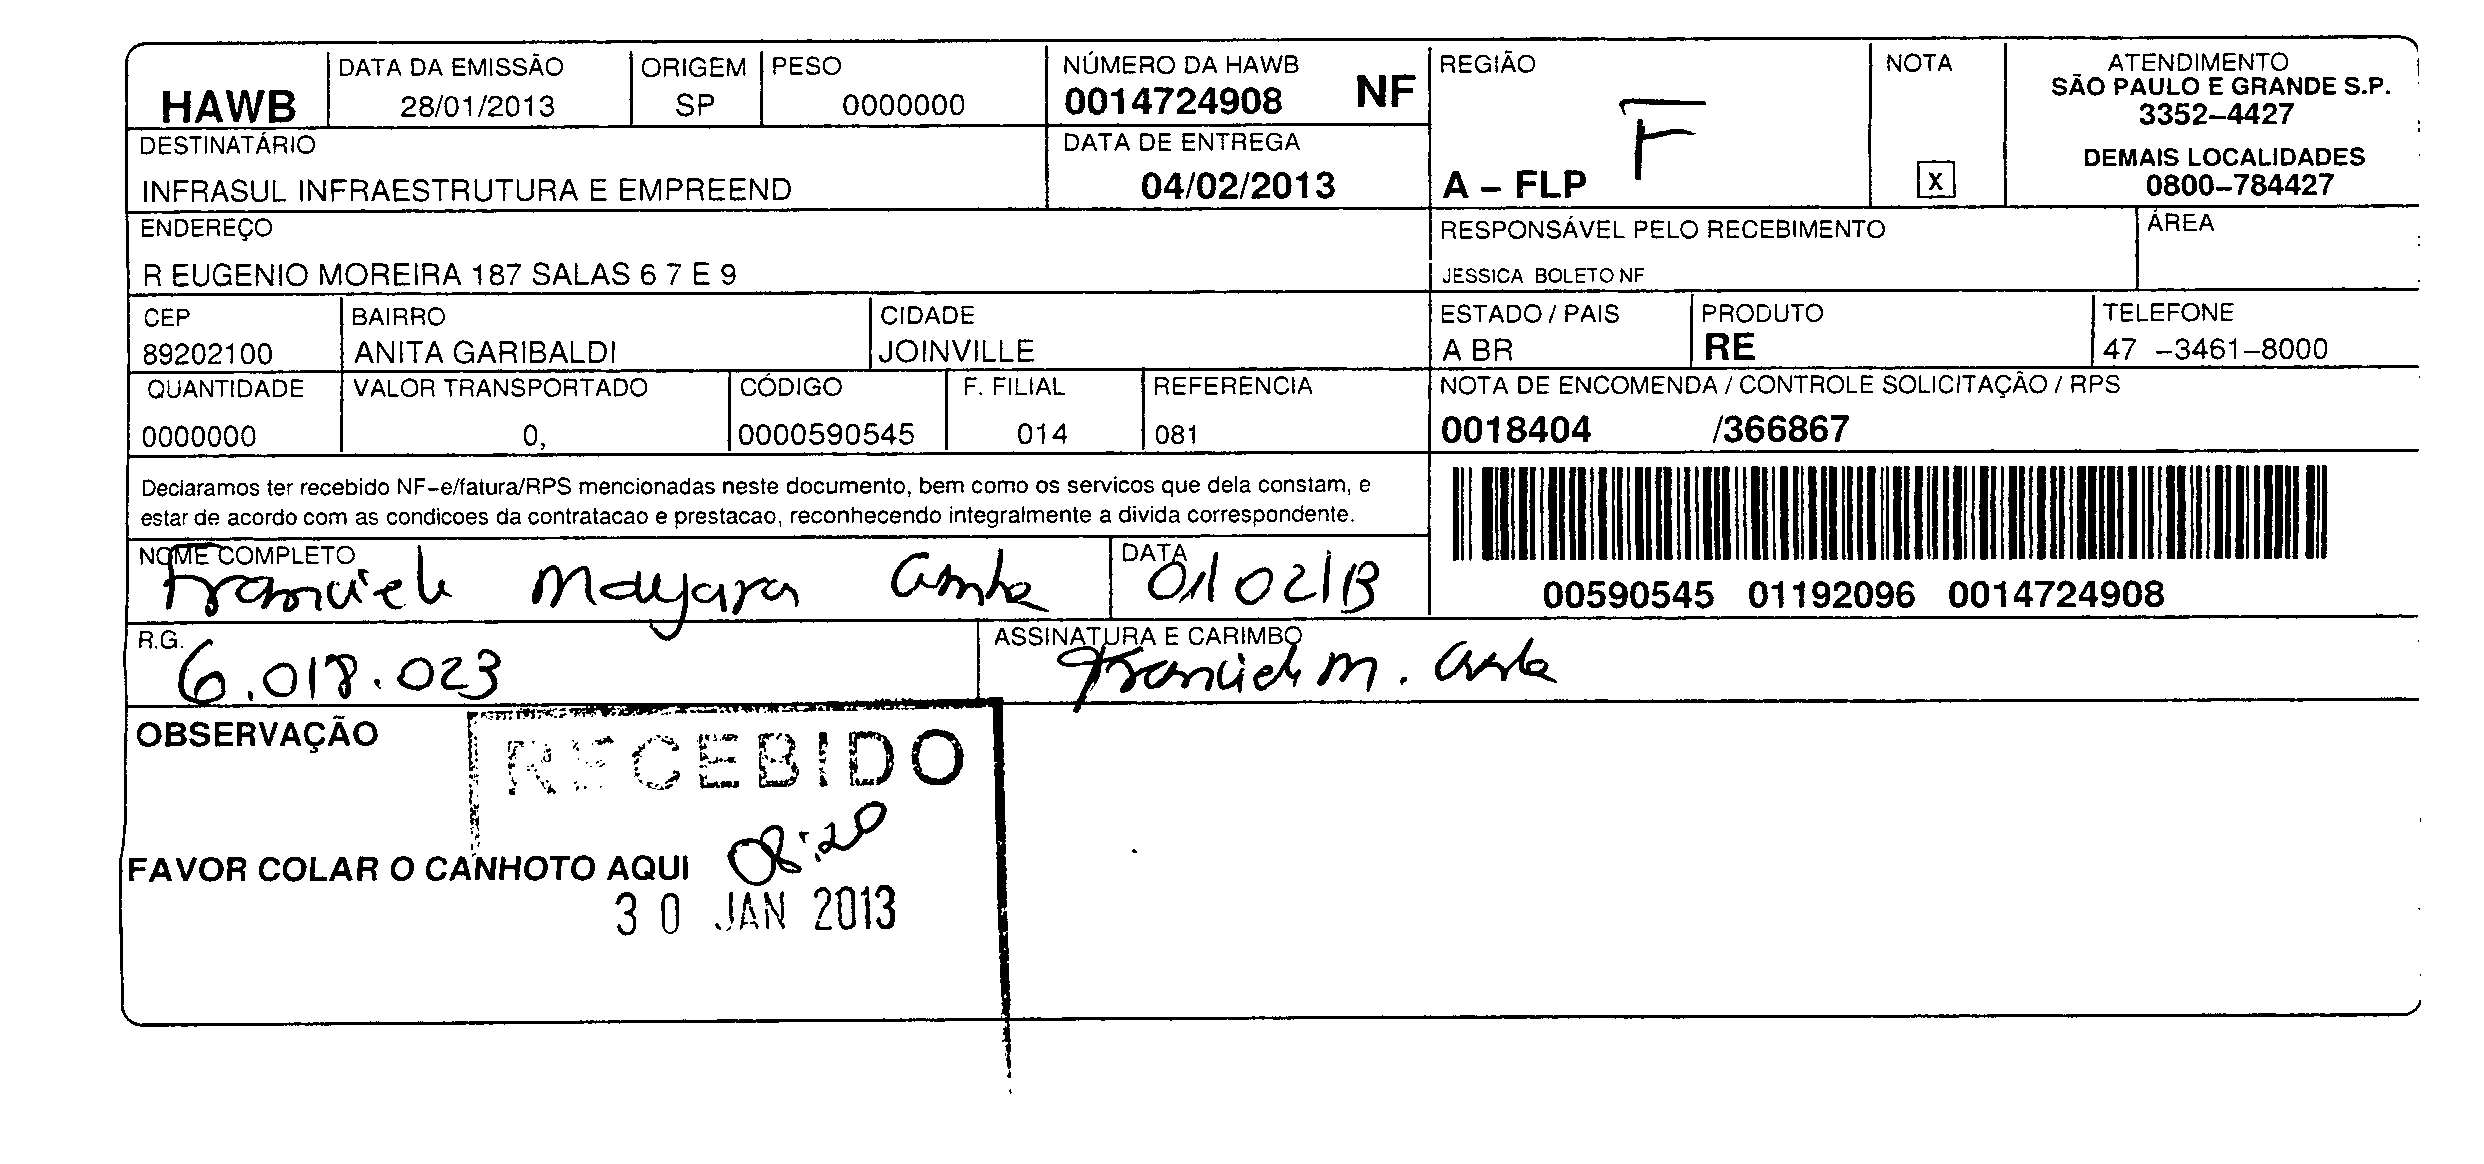 HAWB
DATA DA EMISSÃO
28/01/2013
ORIGEM
SP
PESO
0000000
NÚMERO DA HAWB
0014724908 NF
REGIÃO
A – FLP F
NOTA
X
ATENDIMENTO
SÃO PAULO E GRANDE S.P.
3352–4427
DEMAIS LOCALIDADES
0800–784427
DESTINATÁRIO
INFRASUL INFRAESTRUTURA E EMPREEND
DATA DE ENTREGA
04/02/2013
ENDEREÇO
R EUGENIO MOREIRA 187 SALAS 6 7 E 9
RESPONSÁVEL PELO RECEBIMENTO
JESSICA BOLETO NF
ÁREA
CEP
89202100
BAIRRO
ANITA GARIBALDI
CIDADE
JOINVILLE
ESTADO / PAIS
A BR
PRODUTO
RE
TELEFONE
47 –3461–8000
QUANTIDADE
0000000
VALOR TRANSPORTADO
0,
CÓDIGO
0000590545
F. FILIAL
014
REFERENCIA
081
NOTA DE ENCOMENDA / CONTROLE SOLICITAÇÃO / RPS
0018404 /366867
Declaramos ter recebido NF–e/fatura/RPS mencionadas neste documento, bem como os servicos que dela constam, e
estar de acordo com as condicoes da contratacao e prestacao, reconhecendo integralmente a divida correspondente.
00590545 01192096 0014724908
NOME COMPLETO
Franciele Mayara
DATA
01/02/13
R.G.
6.018.023
ASSINATURA E CARIMBO
M.
OBSERVAÇÃO
RECEBIDO
08:20
FAVOR COLAR O CANHOTO AQUI
30 JAN 2013